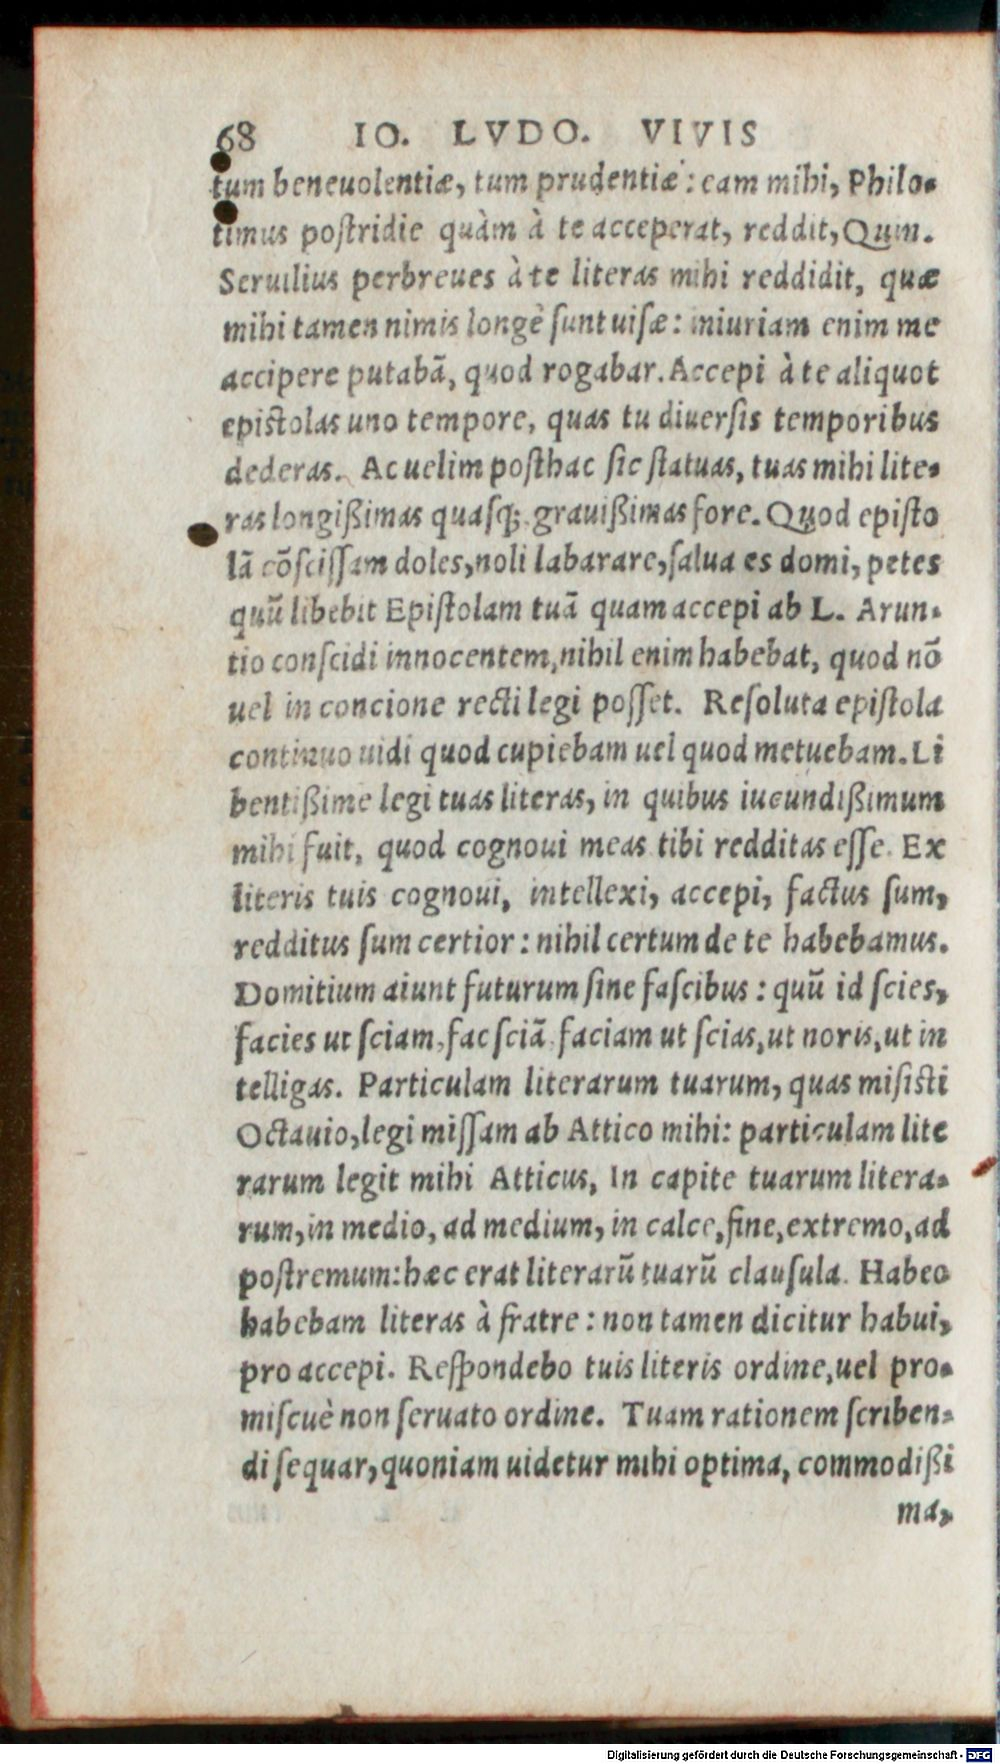 68 IO. LVDO. VIVIS
tum beneuolentiæ, tum prudentiæ: eam mihi, Philo-
timus postridie quàm à te acceperat, reddit, Quin.
Seruilius perbreues à te literas mihi reddidit, quæ
mihi tamen nimis longè sunt uisæ: iniuriam enim me
accipere putabā, quod rogabar. Accepi à te aliquot
epistolas uno tempore, quas tu diuersis temporibus
dederas. Ac uelim posthac sic statuas, tuas mihi lite-
ras longißimas quasq; grauißimas fore. Quod episto
lā cōscissam doles, noli labarare, salua es domi, petes
quū libebit Epistolam tuā quam accepi ab L. Arun-
tio conscidi innocentem, nihil enim habebat, quod nō
uel in concione recti legi posset. Resoluta epistola
continuo uidi quod cupiebam uel quod metuebam. Li
bentißime legi tuas literas, in quibus iucundißimum
mihi fuit, quod cognoui meas tibi redditas esse. Ex
literis tuis cognoui, intellexi, accepi, factus sum,
redditus sum certior: nihil certum de te habebamus.
Domitium aiunt futurum sine fascibus: quū id scies,
facies ut sciam, fac sciā faciam ut scias, ut noris, ut in
telligas. Particulam literarum tuarum, quas misisti
Octauio, legi missam ab Attico mihi: particulam lite
rarum legit mihi Atticus, In capite tuarum litera-
rum, in medio, ad medium, in calce, fine, extremo, ad
postremum: hæc erat literarū tuarū clausula. Habeo
habebam literas à fratre: non tamen dicitur habui,
pro accepi. Respondebo tuis literis ordine, uel pro-
miscuè non seruato ordine. Tuam rationem scriben-
di sequar, quoniam uidetur mihi optima, commodißi
ma,
Digitalisierung gefördert durch die Deutsche Forschungsgemeinschaft - DFG